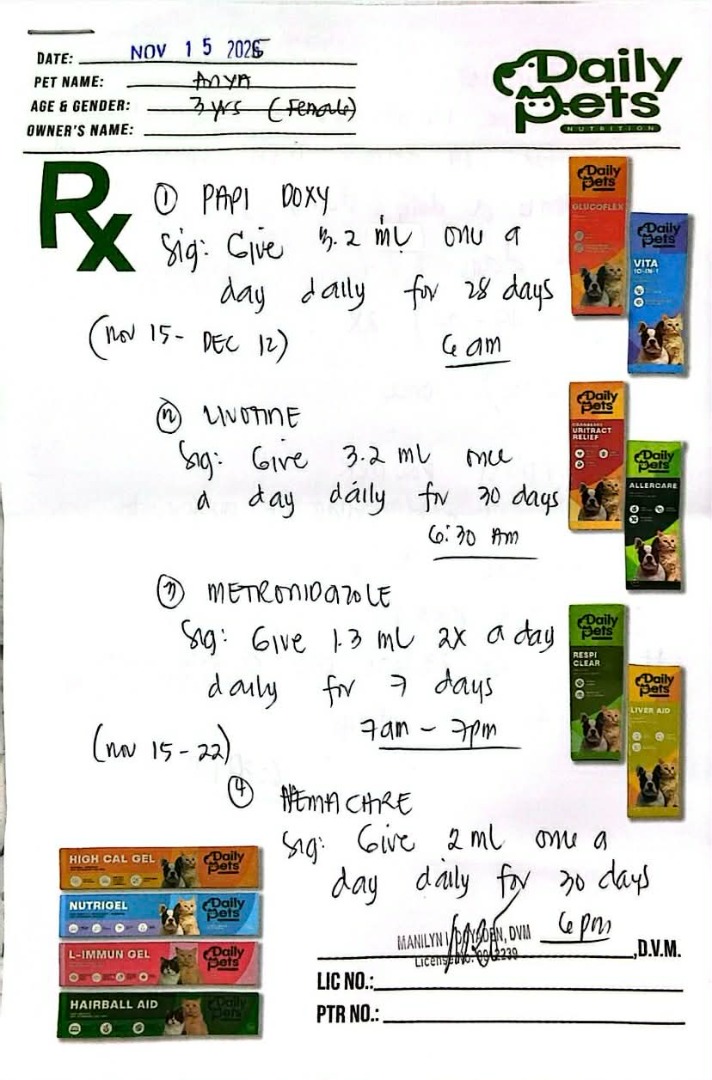 DATE: NOV 15 2025
PET NAME: ANYA
AGE & GENDER: 3 yrs (Female)
OWNER'S NAME:
Daily Pets
NUTRITION
Rx
① PAPI DOXY
Sig: Give 3.2 mL once a
day daily for 28 days
(Nov 15 - DEC 12)
6 am
② LIVOTINE
Sig: Give 3.2 mL once
a day daily for 30 days
6:30 AM
③ METRONIDAZOLE
Sig: Give 1.3 mL 2X a day
daily for 7 days
7am - 7pm
(Nov 15 - 22)
④ HEMACARE
Sig: Give 2 mL once a
day daily for 30 days
6pm
Daily Pets
GLUCOFLEX
Daily Pets
VITA
10-IN-1
Daily Pets
URITRACT
RELIEF
Daily Pets
ALLERCARE
Daily Pets
RESPI
CLEAR
Daily Pets
LIVER AID
HIGH CAL GEL Daily Pets
NUTRIGEL Daily Pets
L-IMMUN GEL Daily Pets
HAIRBALL AID Daily Pets
MANILYN DVM
,D.V.M.
LIC NO.:
PTR NO.: